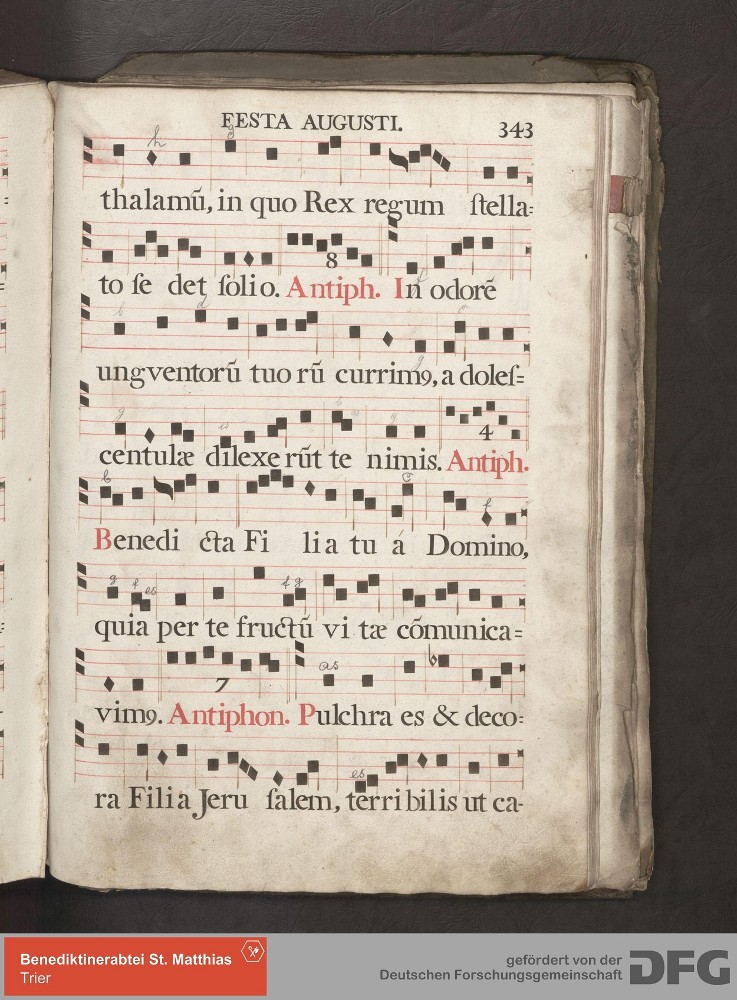 FESTA AUGUSTI. 343
thalamū, in quo Rex regum ſtella=
8
to ſe det ſolio. Antiph. In odorē
ungventorū tuo rū currimꝯ, a doleſ=
4
centulæ dilexe rūt te nimis. Antiph.
Benedi cta Fi lia tu á Domino,
quia per te fructū vi tæ cōmunica=
7
vimꝯ. Antiphon. Pulchra es & deco=
ra Filia Jeru ſalem, terribilis ut ca-
Benediktinerabtei St. Matthias
Trier
gefördert von der
Deutschen Forschungsgemeinschaft
DFG